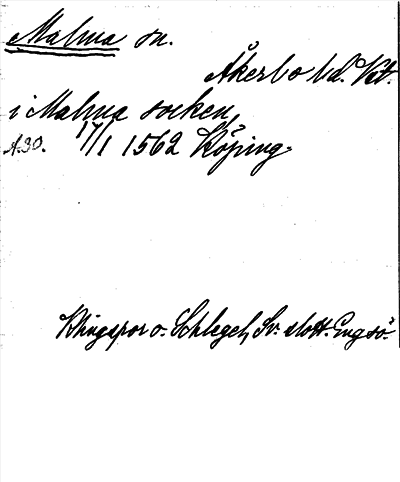 Malma sn.
Åkerbo hd. Vstm.
i Malma socken,
A.30. 17/1 1562 Köping.
Klingspor o. Schlegel, Sv. slott. Engsö.